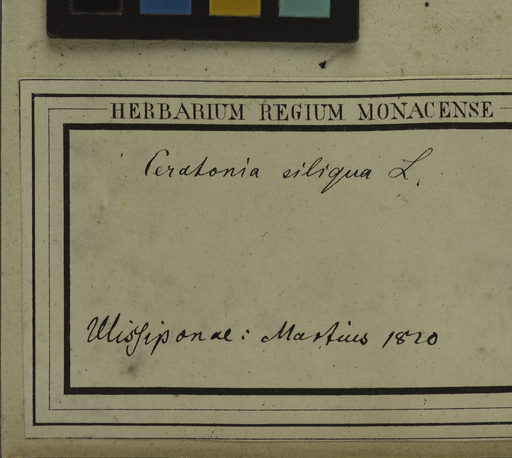 HERBARIUM REGIUM MONACENSE
Ceratonia siliqua L.
Ulissiponae: Martius 1820